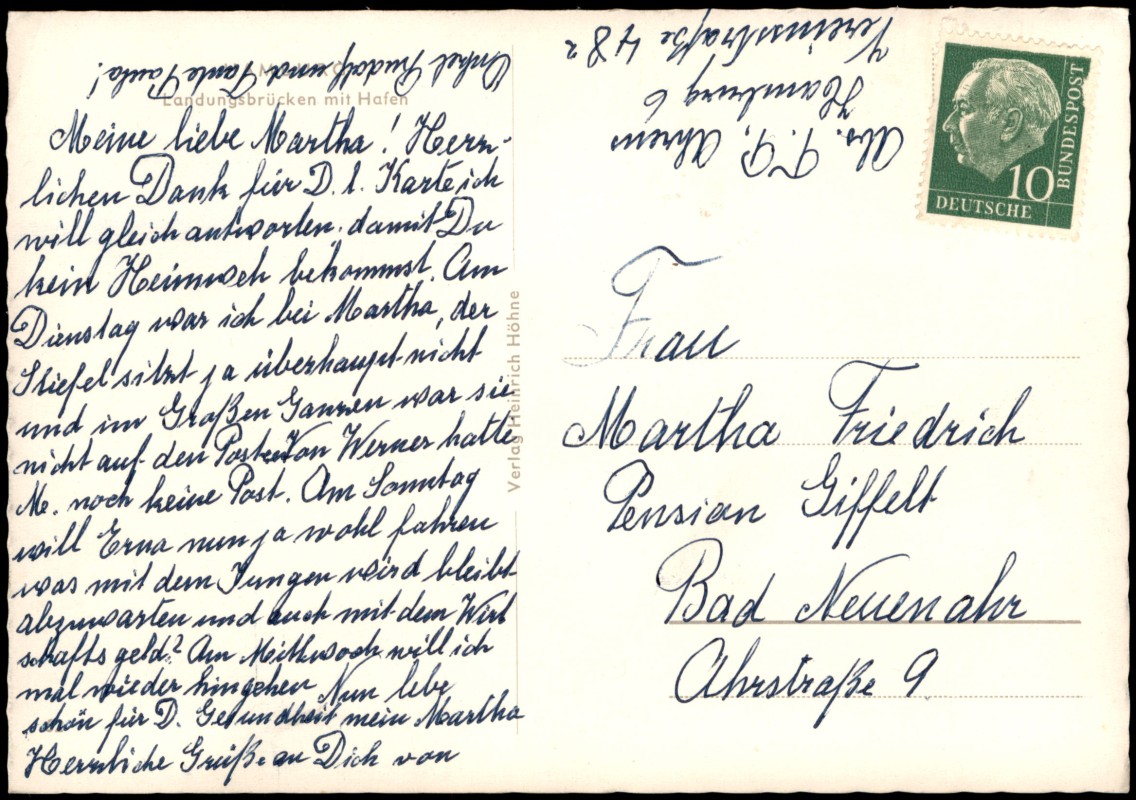 Landungsbrücken mit Hafen
Meine liebe Martha! Herz-
lichen Dank für D. l. Karte ich
will gleich antworten. damit Du
kein Heimweh bekommst. Am
Dienstag war ich bei Martha, der
Stiefel sitzt ja überhaupt nicht
und im Großen Ganzen war sie
nicht auf den Posten Von Werner hatte
M. noch keine Post. Am Sonntag
will Erna nun ja wohl fahren
was mit dem Jungen wird bleibt
abzuwarten und auch mit dem Wirt
schaftsgeld? Am Mittwoch will ich
mal wieder hingehen Nun lebe
schön für D. Gesundheit mein Martha
Herzliche Grüße an Dich von
Onkel Rudolf und Tante Paula!
Verlag Heinrich Höhne
Abs. Ahrens
Hamburg 6
Vereinsstraße 48
10
DEUTSCHE
BUNDESPOST
Frau
Martha Friedrich
Pension Giffelt
Bad Neuenahr
Ahrstraße 9